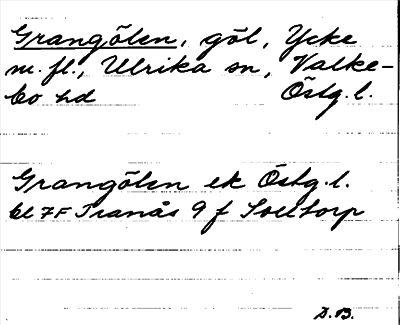 Grangölen, göl, Ycke
m. fl., Ulrika sn, Valke-
bo hd Östg. l.
Grangölen ek Östg. l.
bl 7F Tranås 9 f Soeltorp
D. B.